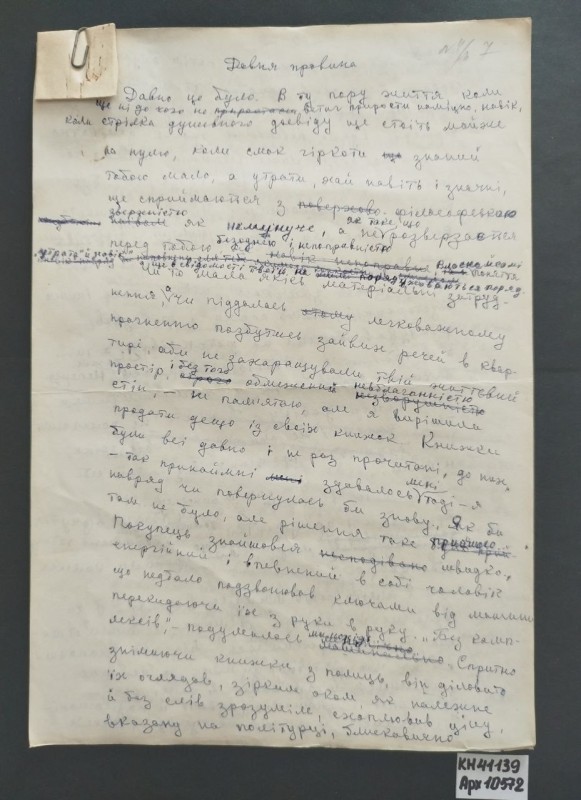 7
Давня провина
Давно це було. В ту пору життя, коли
ще ні до кого не встиг прирости намицно, навік,
коли стрілка душевного досвіду ще стоїть майже
на нулю, коли смак гіркоти ще знаний
тобою мало, а утрати, хай навіть і значні,
ще сприймаються з поверхово філософською
зверхністю як неминуче, а не як те, що розверзається
перед тобою безоднею і непоправністю
Власне, самі поняття
"утрата" й "навік" ще в свідомості твоїй не поряд
Чи то знала якісь матеріальні затруд-
нення, а чи піддалась легковажному
прагненню позбутись зайвих речей в квар-
тирі, аби не захаращували твій життєвий
простір, і без того обмежений незворушністю
стін, – не пам'ятаю, але я вирішила
продати дещо із своїх книжок. Книжки
були всі давно і не раз прочитані, до них,
– так принаймні здавалось мені тоді – я
навряд чи повернулась би знову. Як би
там не було, але рішення таке
Покупець знайшовся несподівано швидко,
енергійний і впевнений в собі чоловік
що недбало подзвонював ключами від машини
перекидаючи їх з руки в руку. „Без комп-
лексів", – подумалось мимохіть. Спритно
знімаючи книжки з полиць, він діловито
їх оглядав, зірким оком, як належне
й без слів зрозуміле, схоплював ціну,
вказану на палітурці, блискавично
КН41139
Арх10572